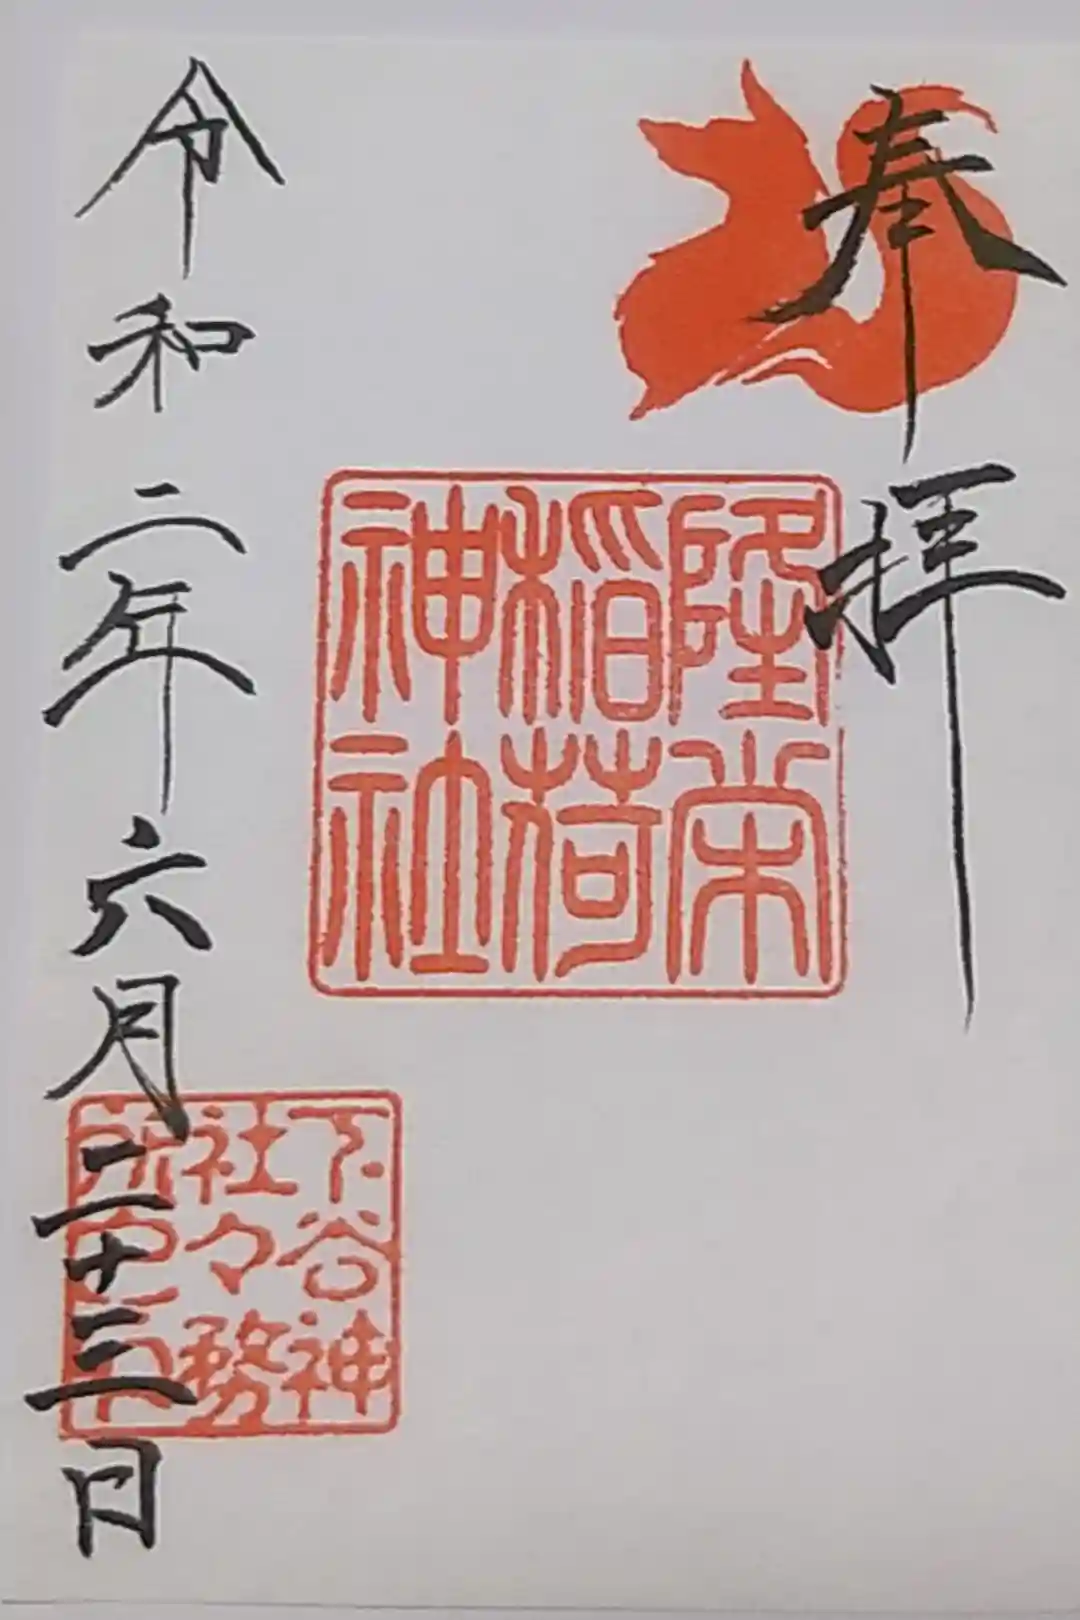 奉拝
隆栄
稲荷
神社
令和二年六月二十三日
下谷神
社々務